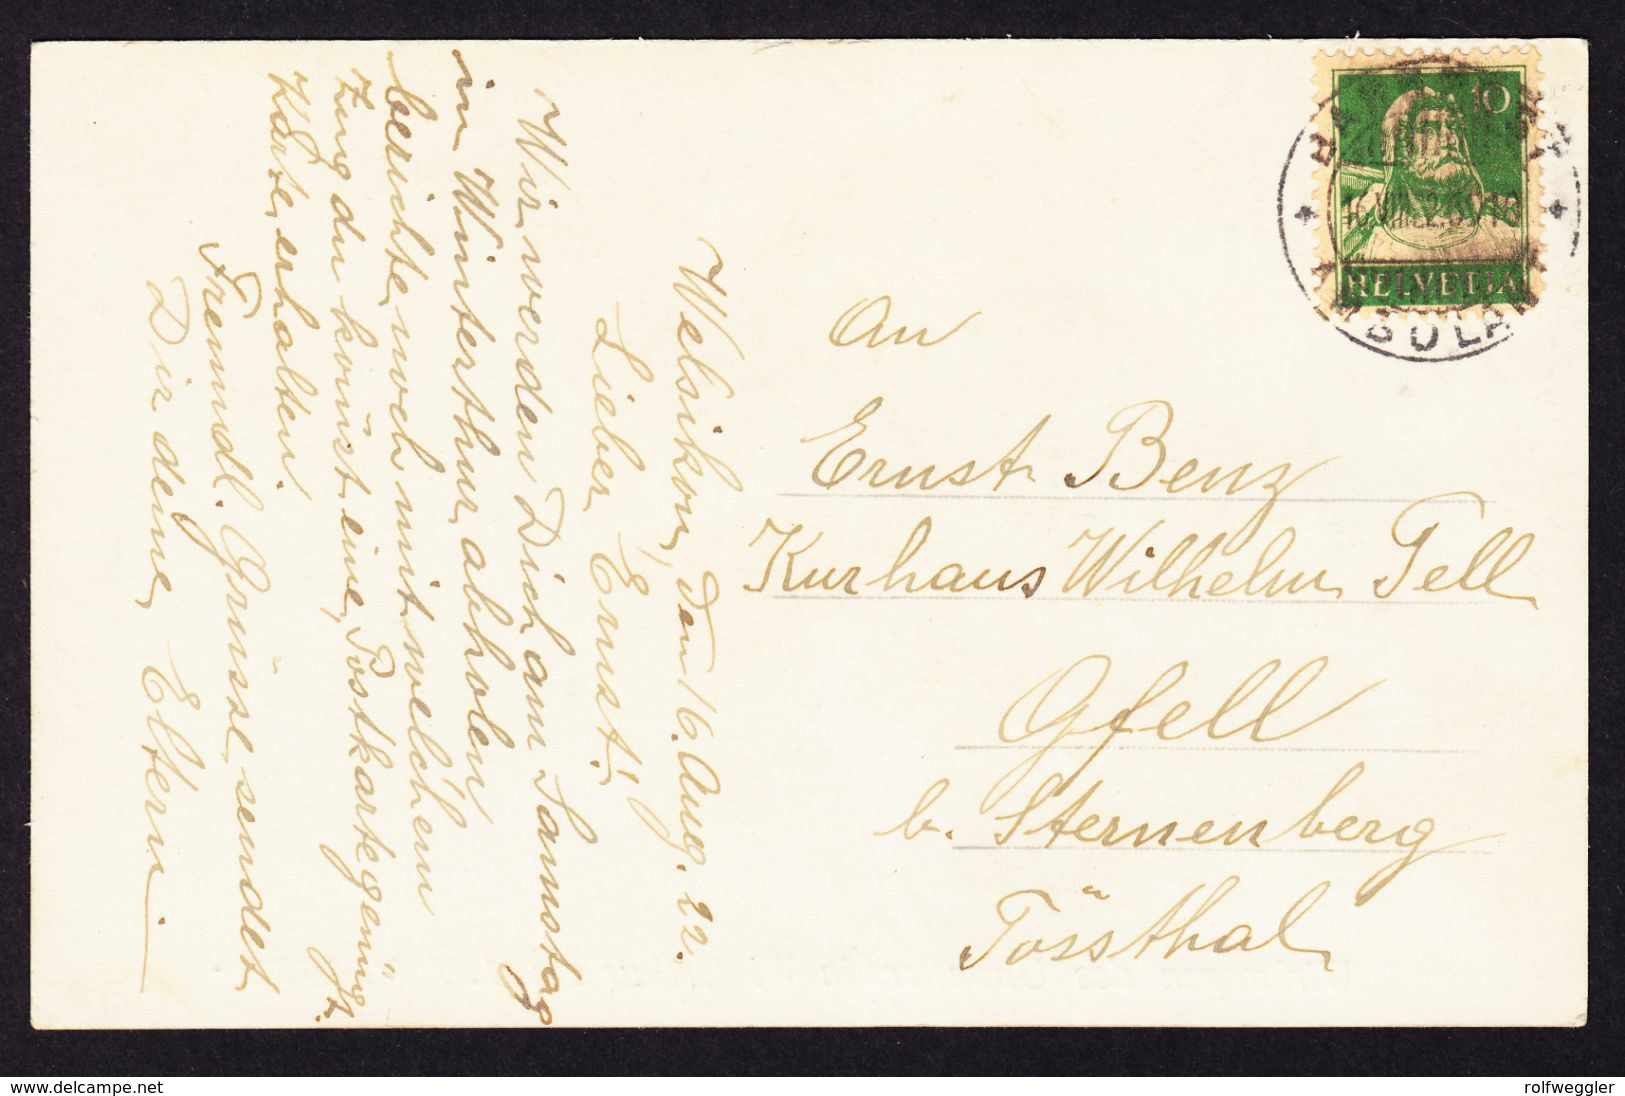 Welsikon, den 16. Aug. 22.
Lieber Ernst!
Wir werden Dich am Samstag
in Winterthur abholen
berichte noch mit welchem
Zug du komst eine Postkarte genügt.
Karte erhalten.
Freundl. Grüsse sendet
Dir deine Eltern
An
Ernst Benz
Kurhaus Wilhelm Tell
Gfell
b. Sternenberg
Tössthal
10
HELVETIA
www.delcampe.net
rolfweggler